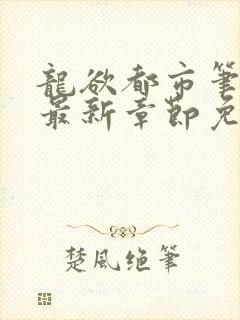 龍欲都市筆
最新章節免
楚風绝筆